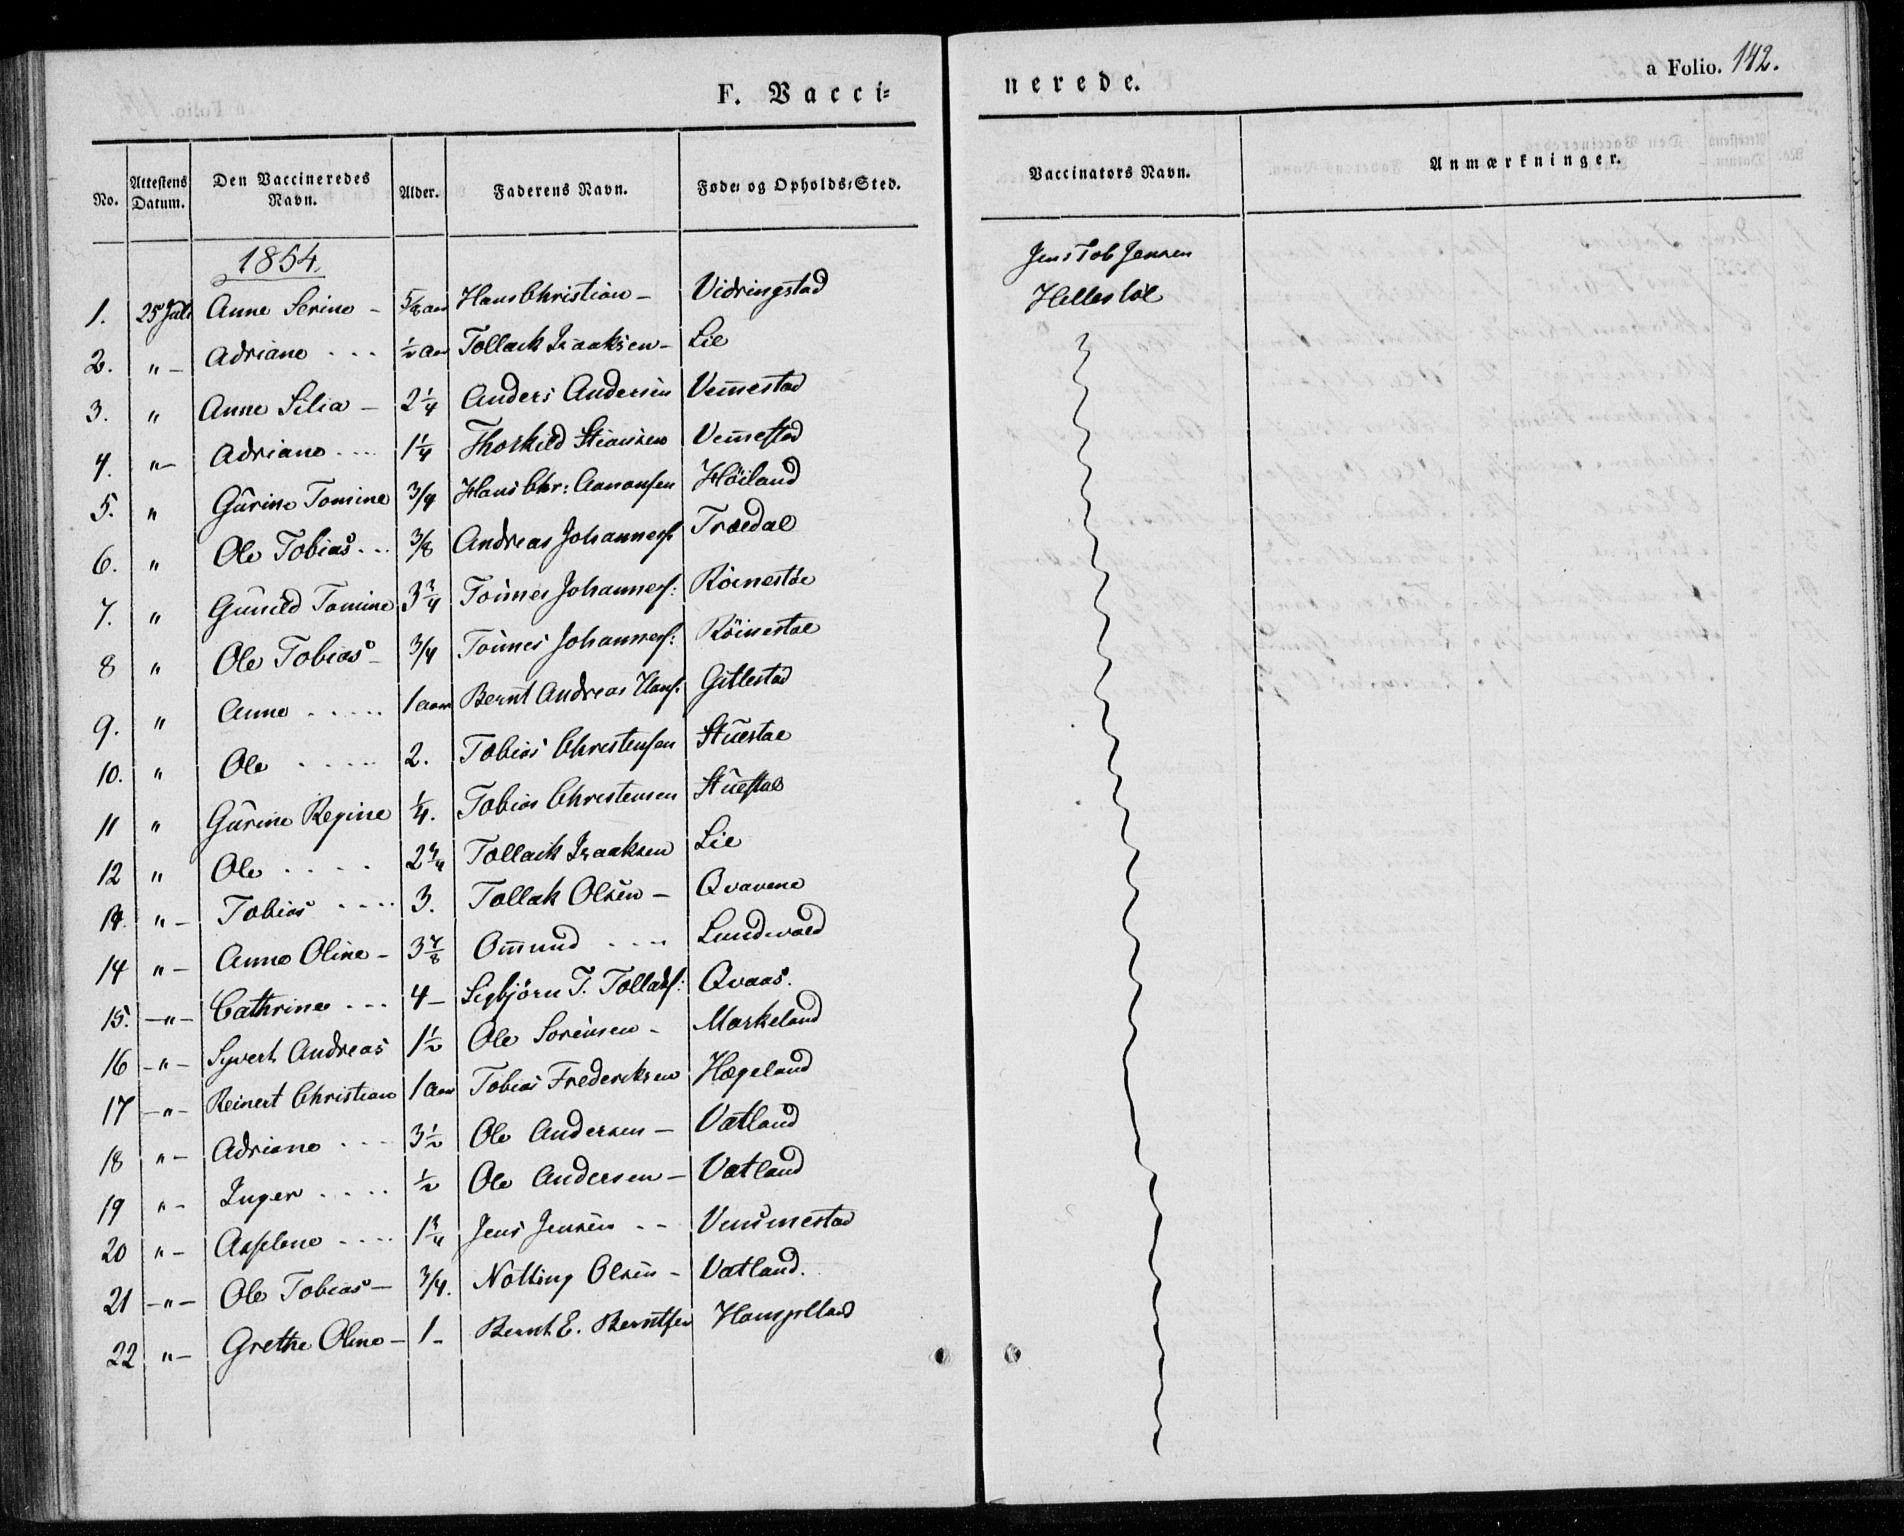 F. Vacci=
nerede.
a Folio. 142.
No. Attestens Datum. Den Vaccineredes Navn. Alder. Faderens Navn. Føde= og Opholds=Sted. Vaccinators Navn. Anmærkninger.
1854.
1. 25 Juli Anne Serine – 5/8 aar Hans Christian – Vidringstad Jens Tob Jensen
2. " – Adriane . . . 1/2 aar Tollack Isaaksen – Lie
3. " Anne Silia – 2 1/4 Anders Andersen Vem̄estad
4. " – Adriane . . . . 1 1/4 Thorkild Vem̄estad
5. " Gurine Tomine 3/4 Hans Chr: Aanonsen Höiland
6. " Ole Tobias . . . 3/8 Andreas Johannesf Trædal
7. " Gunild Tomine 3 3/4 Tönnes Johannesf: Röinestöe
8 " Ole Tobias – 3/4 Tönnes Johannesf: Röinestöe
9. " Anne . . . . . 1 aar Bernt Andreas Hansf. Gitlestad
10. " Ole . . . . . 2. Tobias Christensen Stuestöe
11 " Gurine Regine 1/4. Tobias Christensen Stuestöe
12 " Ole . . . . 2 3/4 Tollack Isaaksen Lie
14. " – Tobias . . . . 3. Tollak Olsen – Qvavene
14 " – Anne Oline – 3 7/8 Om̄und . . . . Lundevold
15. – " – Cathrine . . . 4 – Sigbjörn T. Tollaksf: Qvaas.
16 – " – Syvert Andreas 1 1/2 Ole Sorensen – Markeland
17 – " – Reinert Christian 1 aar Tobias Frederiksen Hægeland
18 " – Adriane . . . 3 1/2 Ole Andersen – Vatland
19 " – Inger . . . . . 1/2 Ole Andersen – Vatland
20 " – Asselene . . . . 1 3/4 Jens Jensen – – Vemmestad
21 – " – Ole Tobias – 3/4. Notting Olsen – Vatland.
22 " – Grethe Oline – 1 – Bernt E. Berntsen